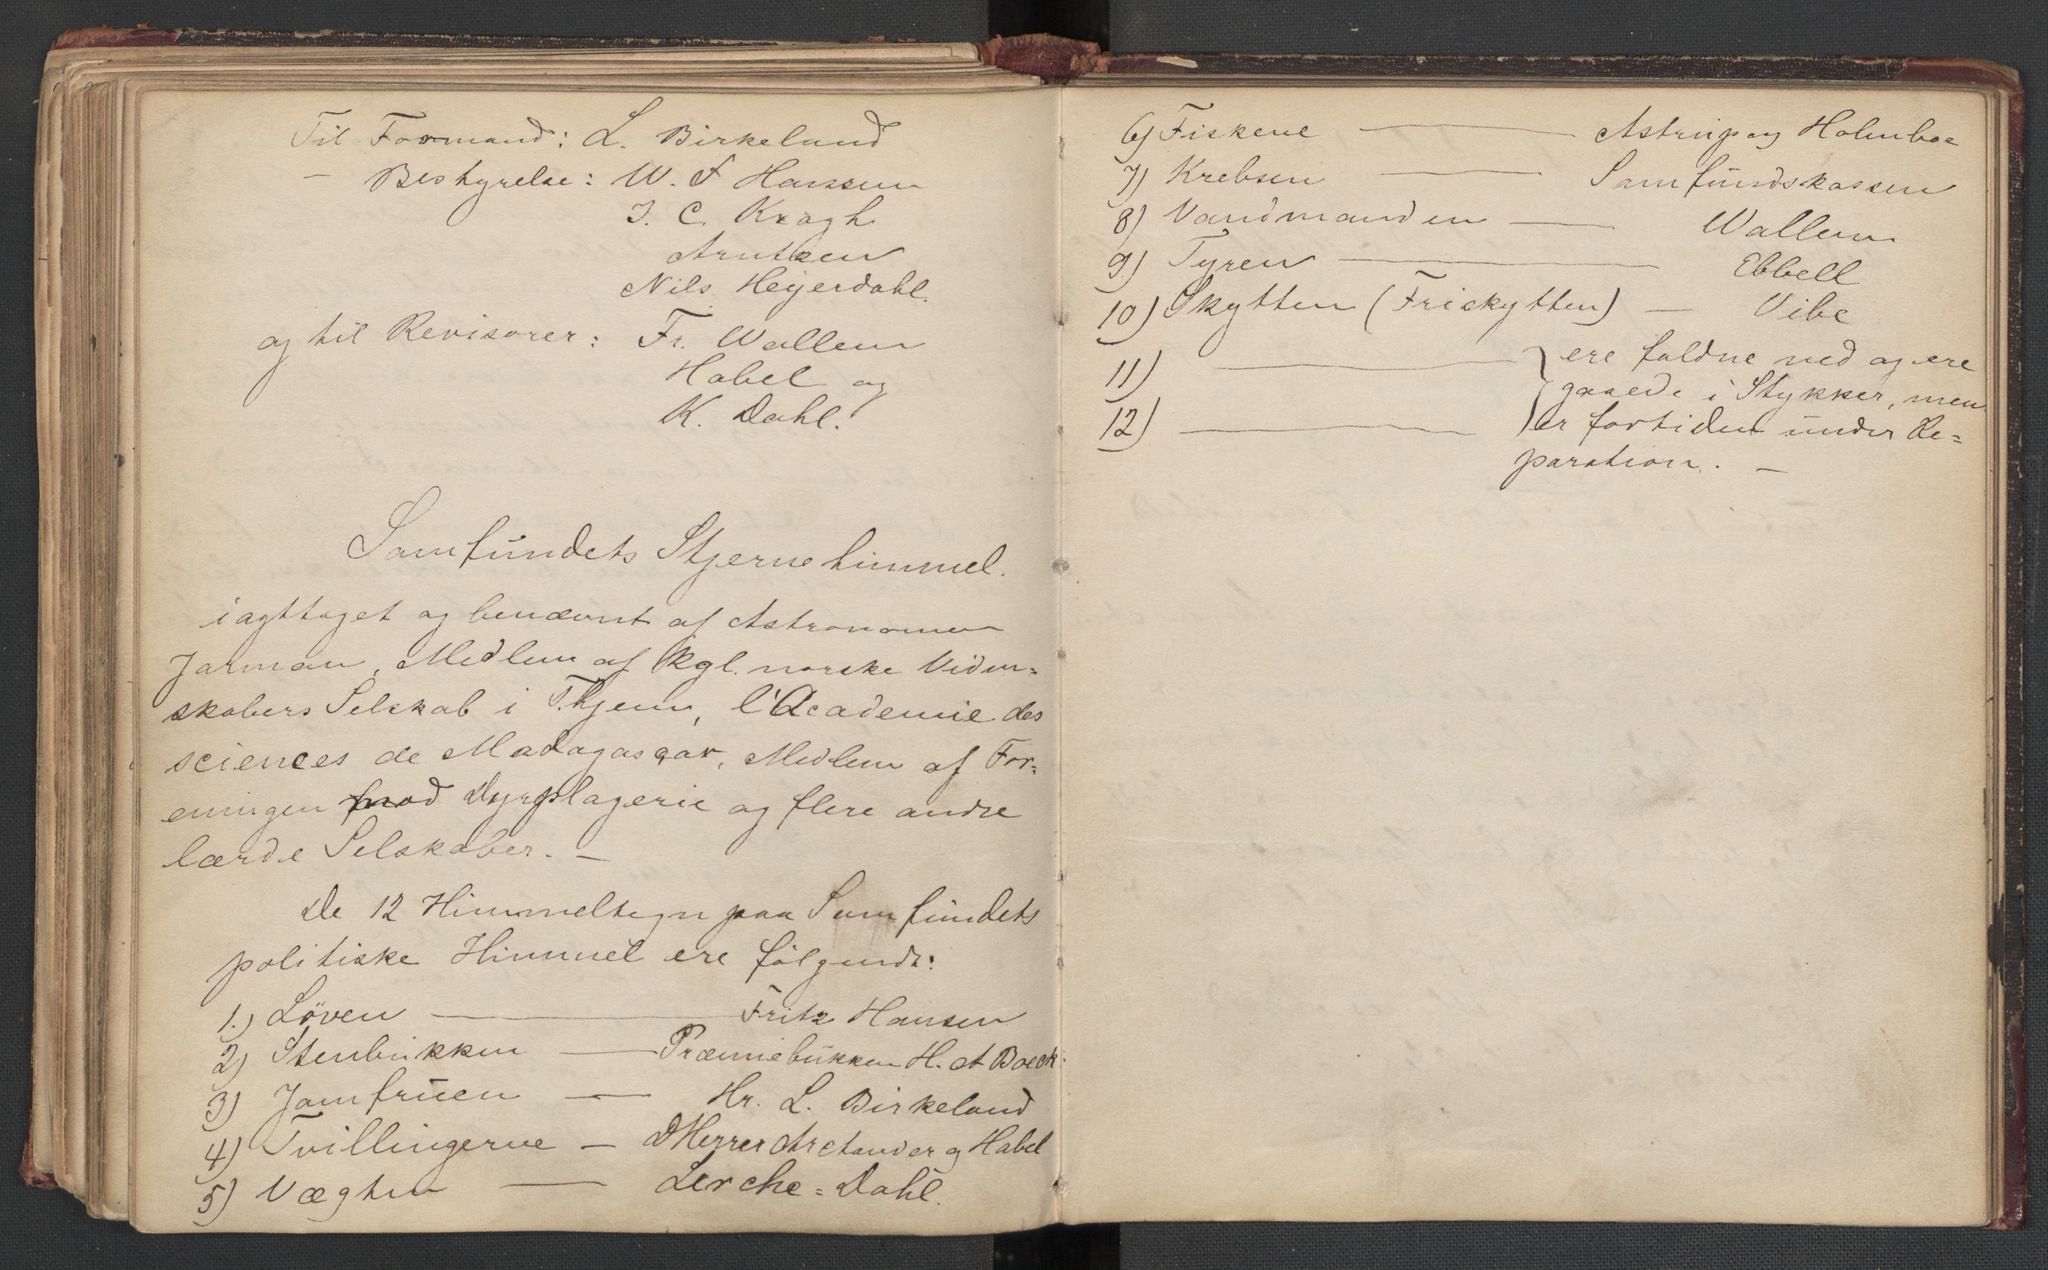 Til Formand: L. Birkeland
— Bestyrelse: W. F Hansen
J. C. Kragh
Arntzen
Nils Heyerdahl.
og til Revisorer: Fr. Wallem
Habel og
K. Dahl.
Samfundets Stjernehimmel.
iagttaget og benævnt af Astronomen
Jarman, Medlem af kgl. norske Viden=
skabers Selskab i Thjem, l'Academie des
sciences de Madagascar, Medlem af For=
eningen mod Dyrplagerie og flere andre
lærde Selskaber. —
De 12 Himmeltegn paa Samfundets
politiske Himmel ere følgende:
1.) Løven — Fritz Hansen
2) Stenbukken — Præmiebukken H. A Boeck
3) Jomfruen — Hr. L. Birkeland
4) Tvillingerne — DHerrer Arctander og Habel
5) Vægten — Lerche=Dahl.
6) Fiskene — Astrup og Holmboe
7) Krebsen — Samfundskassen
8) Vandmanden — Wallem
9) Tyren — Ebbell
10) Skytten (Friskytten) — Vibe
11) — ere faldne ned og ere
gaaede i Stykker, men
12) — er fortiden under Re=
paration. —